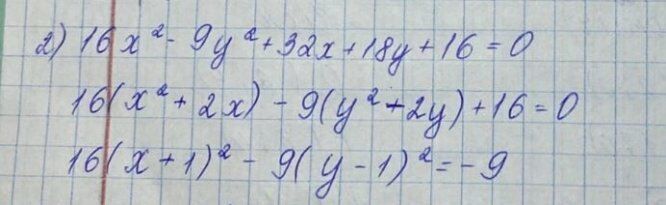 2) 16x² - 9y² + 32x + 18y + 16 = 0
16(x² + 2x) - 9(y² - 2y) + 16 = 0
16(x + 1)² - 9(y - 1)² = -9